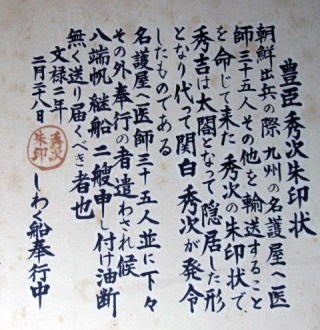 豊臣秀次朱印状
朝鮮出兵の際九州の名護屋へ医
師三十五人その他を輸送すること
を命じて来た秀次の朱印状で
秀吉は太閤となって隠居した形
となり代って関白秀次が発令
したものである
名護屋へ医師三十五人並に下々
その外奉行の者遣わされ候
八端帆継船二艘申し付け油断
無く送り届くべき者也
文禄二年
二月二十八日
秀次朱印
しわく船奉行中